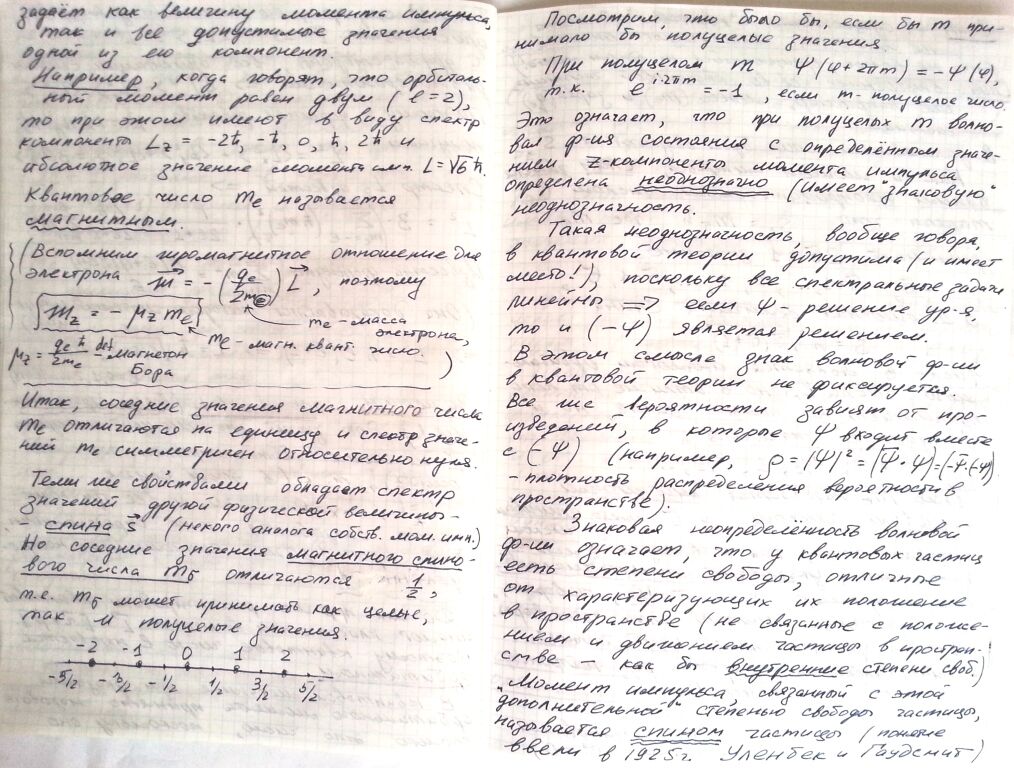 задаёт как величину момента импульса,
так и все допустимые значения
одной из его компонент.
Например, когда говорят, что орбиталь-
ный момент равен двум (ℓ = 2),
то при этом имеют в виду спектр
компоненты L_z = -2ħ, -ħ, 0, ħ, 2ħ и
абсолютное значение момента имп. L = √6 ħ.
Квантовое число m_ℓ называется
магнитным.
(Вспомним гиромагнитное отношение для
электрона m⃗ = -(q_e/2m_e) L⃗, поэтому
m_z = - μ_z m_ℓ
m_e - масса
электрона,
m_ℓ - магн. квант. число.
μ_z = q_e ħ/2m_e def магнетон
Бора )
Итак, соседние значения магнитного числа
m_ℓ отличаются на единицу и спектр значе-
ний m_ℓ симметричен относительно нуля.
Теми же свойствами обладает спектр
значений другой физической величины-
- спина s⃗ (некого аналога собств. мом. имп.)
Но соседние значения магнитного спино-
вого числа m_s отличаются 1/2,
т.е. m_s может принимать как целые,
так и полуцелые значения.
-2 -1 0 1 2
-5/2 -3/2 -1/2 1/2 3/2 5/2
Посмотрим, что было бы, если бы m при-
нимало бы полуцелые значения.
При полуцелом m Ψ(φ+2πm) = -Ψ(φ),
т.к. e^{i·2πm} = -1, если m - полуцелое число.
Это означает, что при полуцелых m волно-
вая ф-ия состояния с определённым значе-
нием z-компоненты момента импульса
определена неоднозначно (имеет "знаковую"
неоднозначность.
Такая неоднозначность, вообще говоря,
в квантовой теории допустима (и имеет
место!), поскольку все спектральные задачи
линейны => если Ψ - решение ур-я,
то и (-Ψ) является решением.
В этом смысле знак волновой ф-ии
в квантовой теории не фиксируется.
Все же вероятности зависят от про-
изведений, в которые Ψ входит вместе
с (-Ψ) (например, ρ = |Ψ|² = (Ψ̄·Ψ) = (-Ψ̄·(-Ψ))
- плотность распределения вероятности в
пространстве).
Знаковая неопределённость волновой
ф-ии означает, что у квантовых частиц
есть степени свободы, отличные
от характеризующих их положение
в пространстве (не связанные с положе-
нием и движением частицы в простран-
стве - как бы внутренние степени своб.)
"Момент импульса, связанный с этой
дополнительной" степенью свободы частицы,
называется спином частицы (понятие
ввели в 1925г. Уленбек и Гаудсмит)